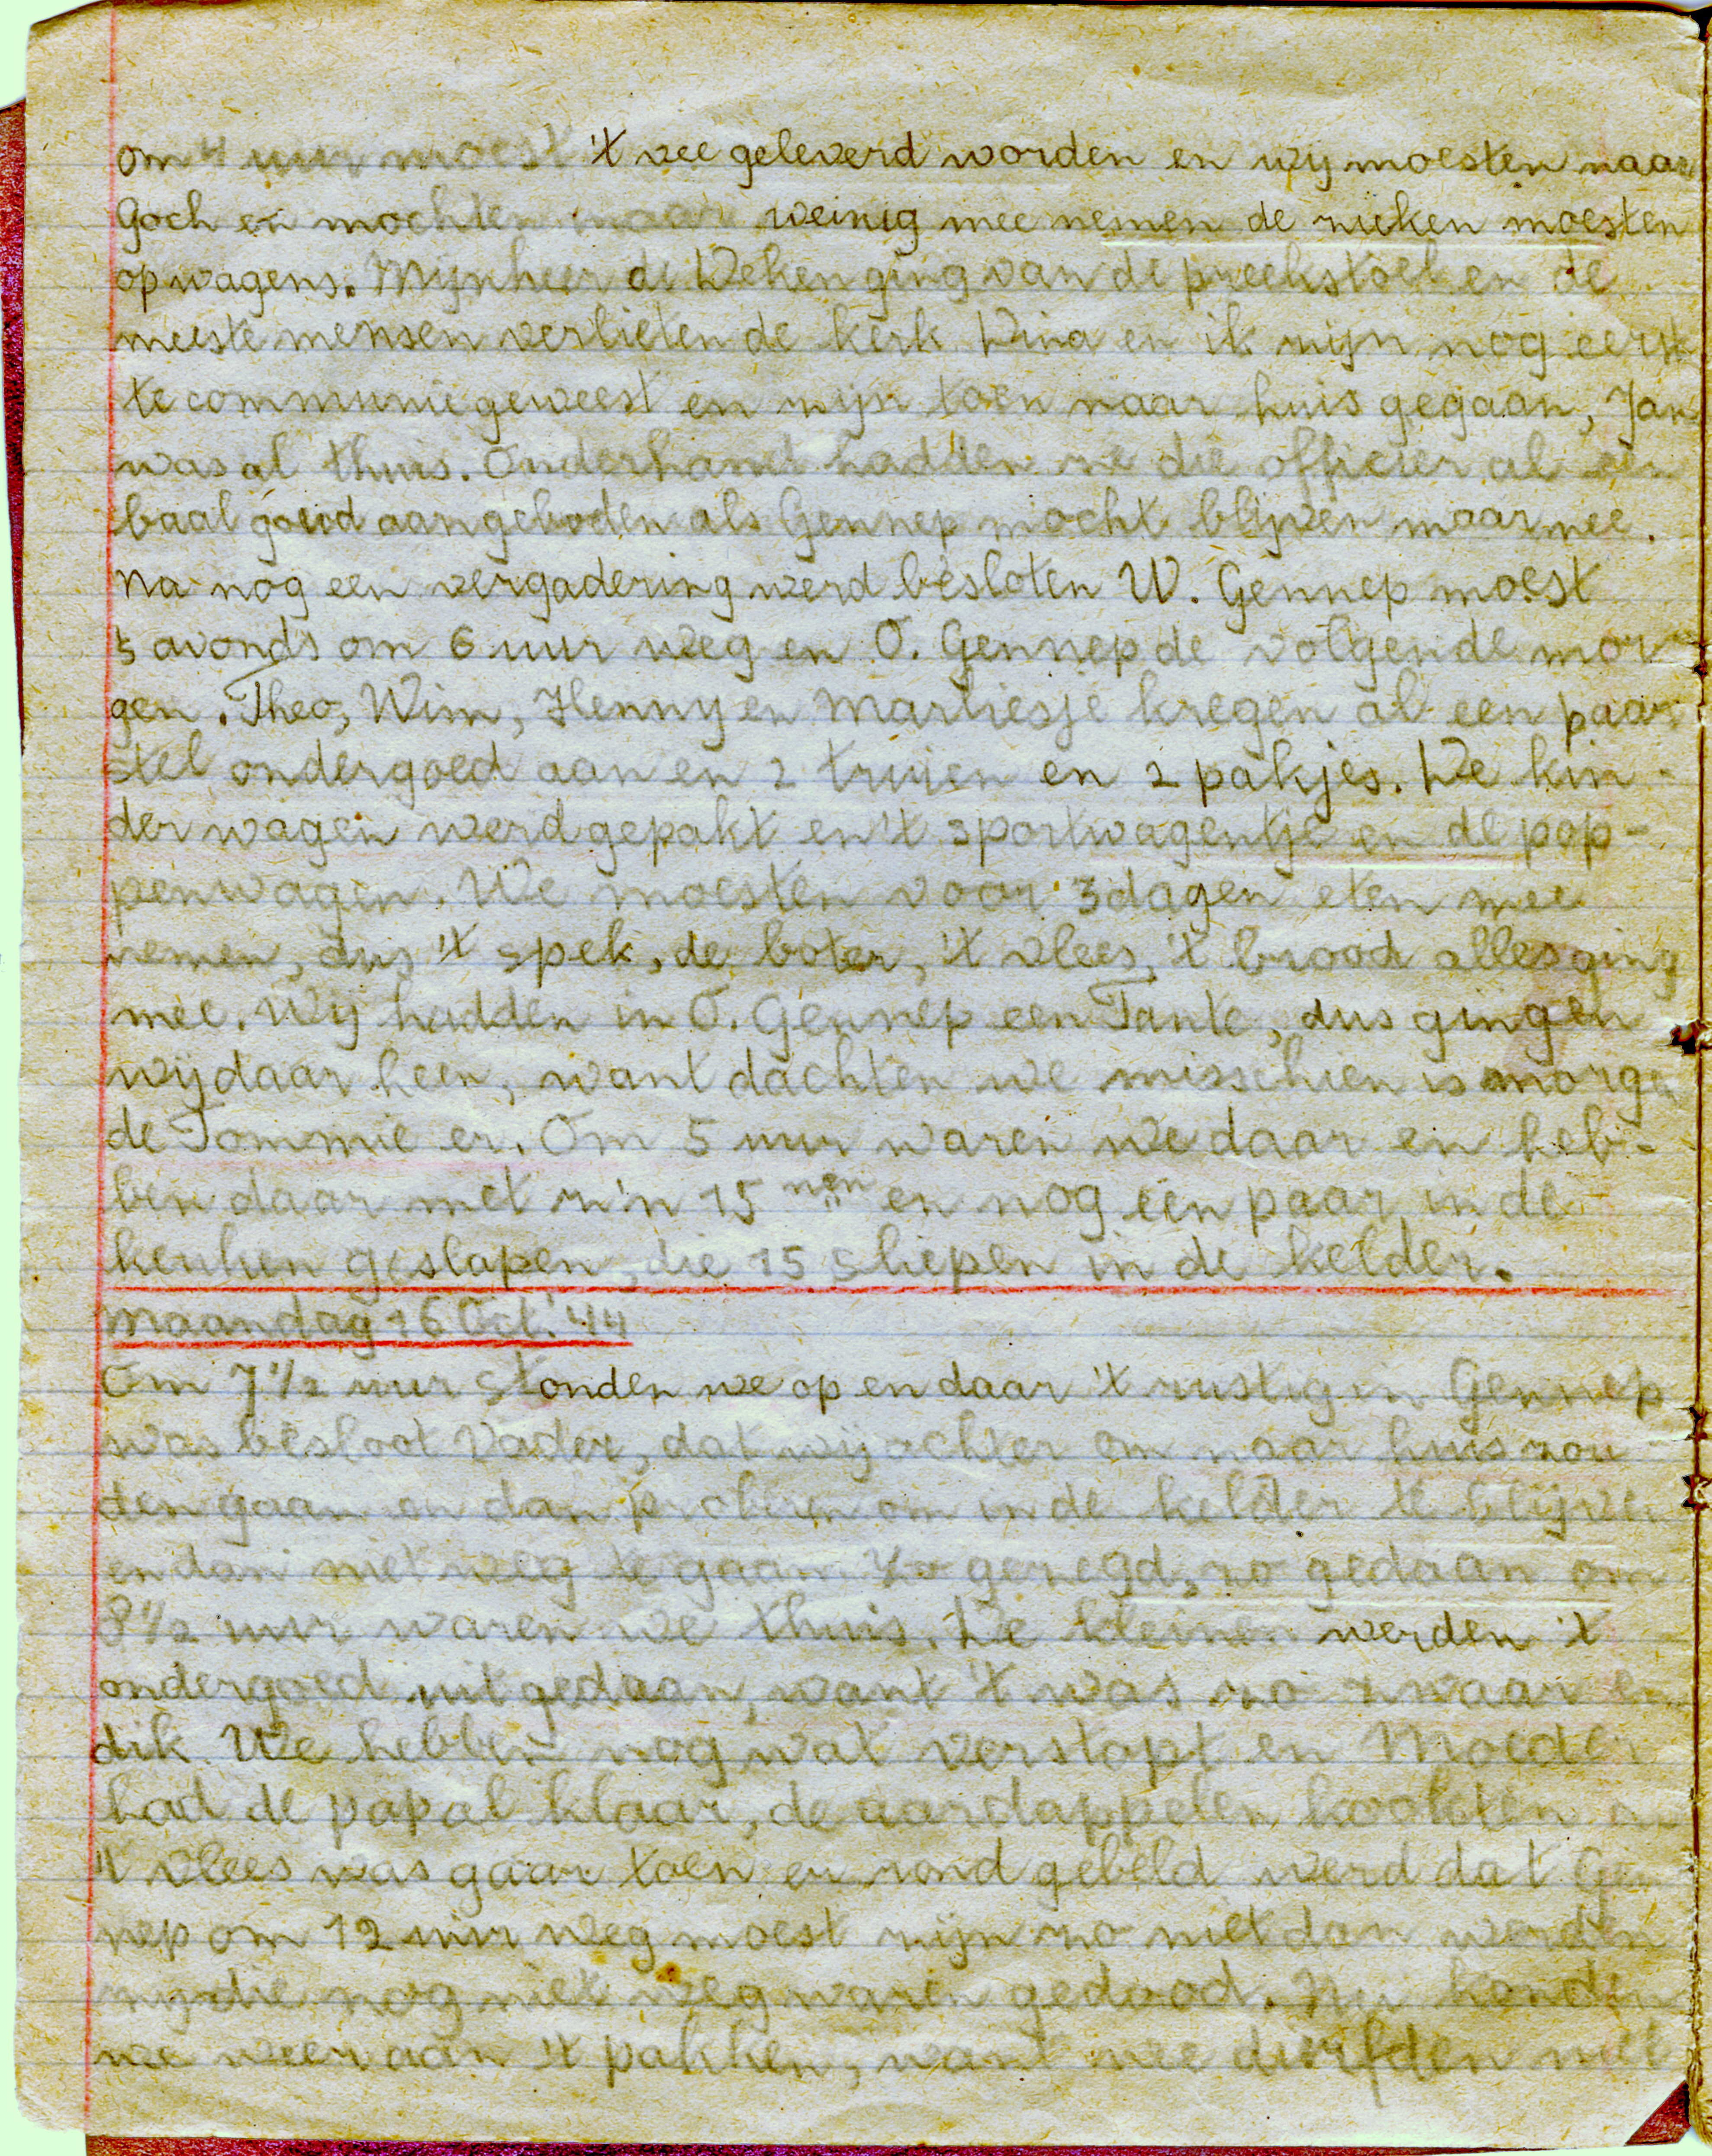 om 4 uur moest 't vee geleverd worden en wij moesten naar
Goch en mochten maar weinig mee nemen de zieken moesten
op wagens. Mijnheer de Deken ging van de preekstoel en de
meeste mensen verlieten de kerk Dina en ik zijn nog eerst
te communie geweest en zijn toen naar huis gegaan, Jan
was al thuis. Onderhand hadden ze die officier al een
baal goud aangeboden als Gennep mocht blijven maar nee.
Na nog een vergadering werd besloten W. Gennep moest
's avonds om 6 uur weg en O. Gennep de volgende mor
gen. Theo, Wim, Henny en Marliesje kregen al een paar
stel ondergoed aan en 2 truien en 2 pakjes. De kin-
derwagen werd gepakt en 't sportwagentje en de pop-
penwagen. We moesten voor 3 dagen eten mee
nemen, dus 't spek, de boter, 't vlees, 't brood alles ging
mee. Wij hadden in O. Gennep een Tante, dus gingen
wij daar heen, want dachten we misschien is morgen
de Tommie er. Om 5 uur waren we daar en heb-
ben daar met z'n 15 nen en nog een paar in de
keuken geslapen, die 15 sliepen in de kelder.
Maandag 16 Oct. '44
Om 7 1/2 uur stonden we op en daar 't rustig in Gennep
was besloot Vader, dat wij achter om naar huis zou
den gaan en dan proberen om in de kelder te blijven
en dan niet weg te gaan. Zo gezegd, zo gedaan om
8 1/2 uur waren we thuis. De kleinen werden 't
ondergoed uitgedaan, want 't was zo zwaar en
dik. We hebben nog wat verstopt en Moeder
had de pap al klaar, de aardappelen kookten en
't vlees was gaar toen er rond gebeld werd dat Gen
nep om 12 uur weg moest zijn zo niet dan werden
zij die nog niet weg waren gedood. Nu konden
we weer aan 't pakken, want we durfden niet